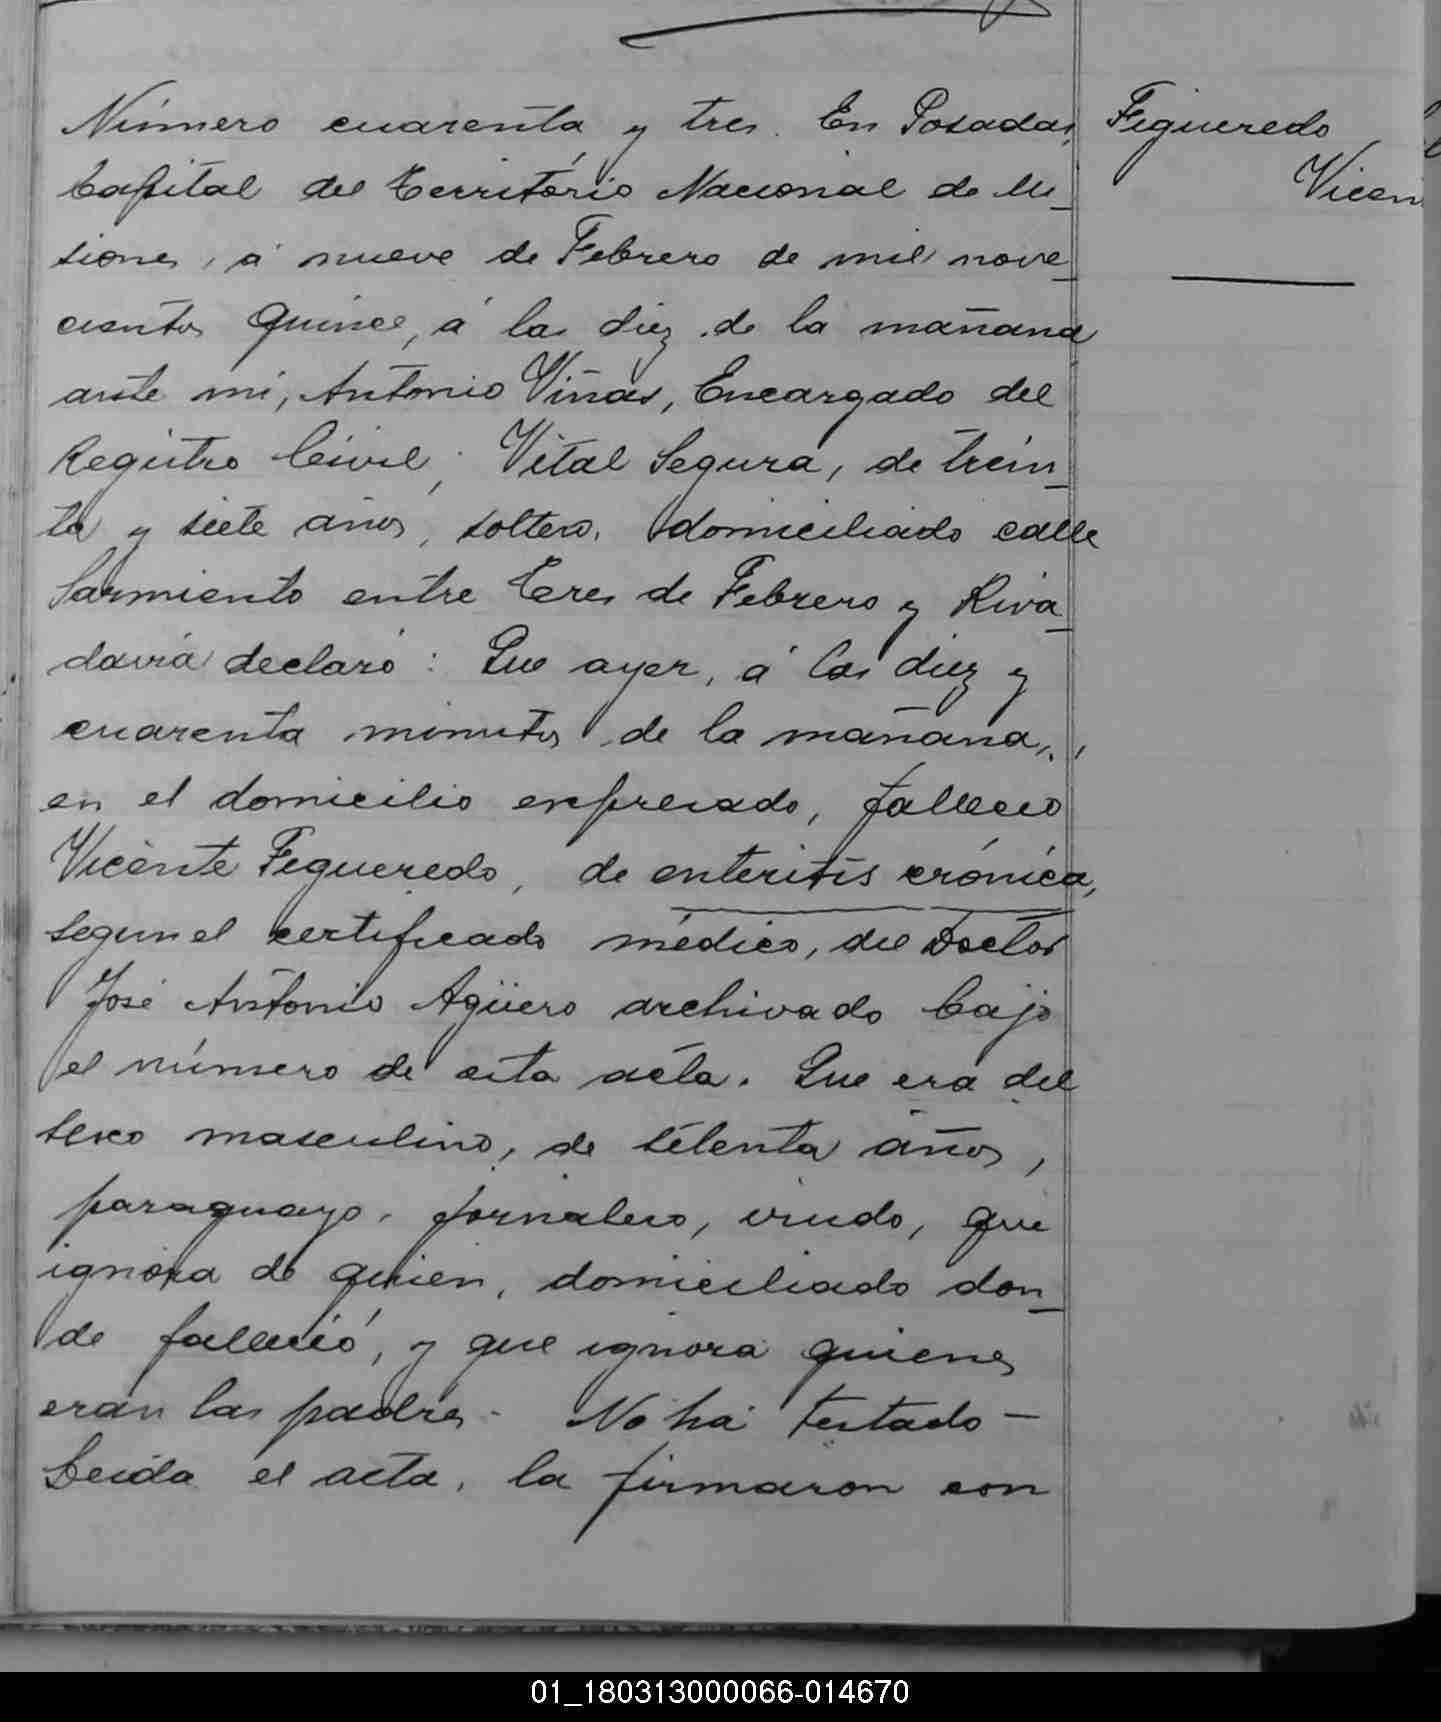 Número cuarenta y tres. En Posadas,
Capital del Território Nacional de Mi_
siones, á nueve de Febrero de mil nove_
cientos quince, á las diez de la mañana
ante mi, Antonio Viñas, Encargado del
Registro Civil; Vital Segura, de trein_
ta y siete años, soltero, domiciliado calle
Sarmiento entre Tres de Febrero y Riva_
davia declaró: Que ayer, á las diez y
cuarenta minutos de la mañana,
en el domicilio expresado, falleció
Vicente Figueredo, de enteritis crónica,
segun el certificado médico, del Doctor
José Antonio Agüero archivado bajo
el número de esta acta. Que era del
sexo masculino, de setenta años,
paraguayo, jornalero, viudo, que
ignora de quien, domiciliado don_
de falleció, y que ignora quienes
eran las padres. No há testado—
Leida el acta, la firmaron con
Figueredo
Vicen
01_180313000066-014670